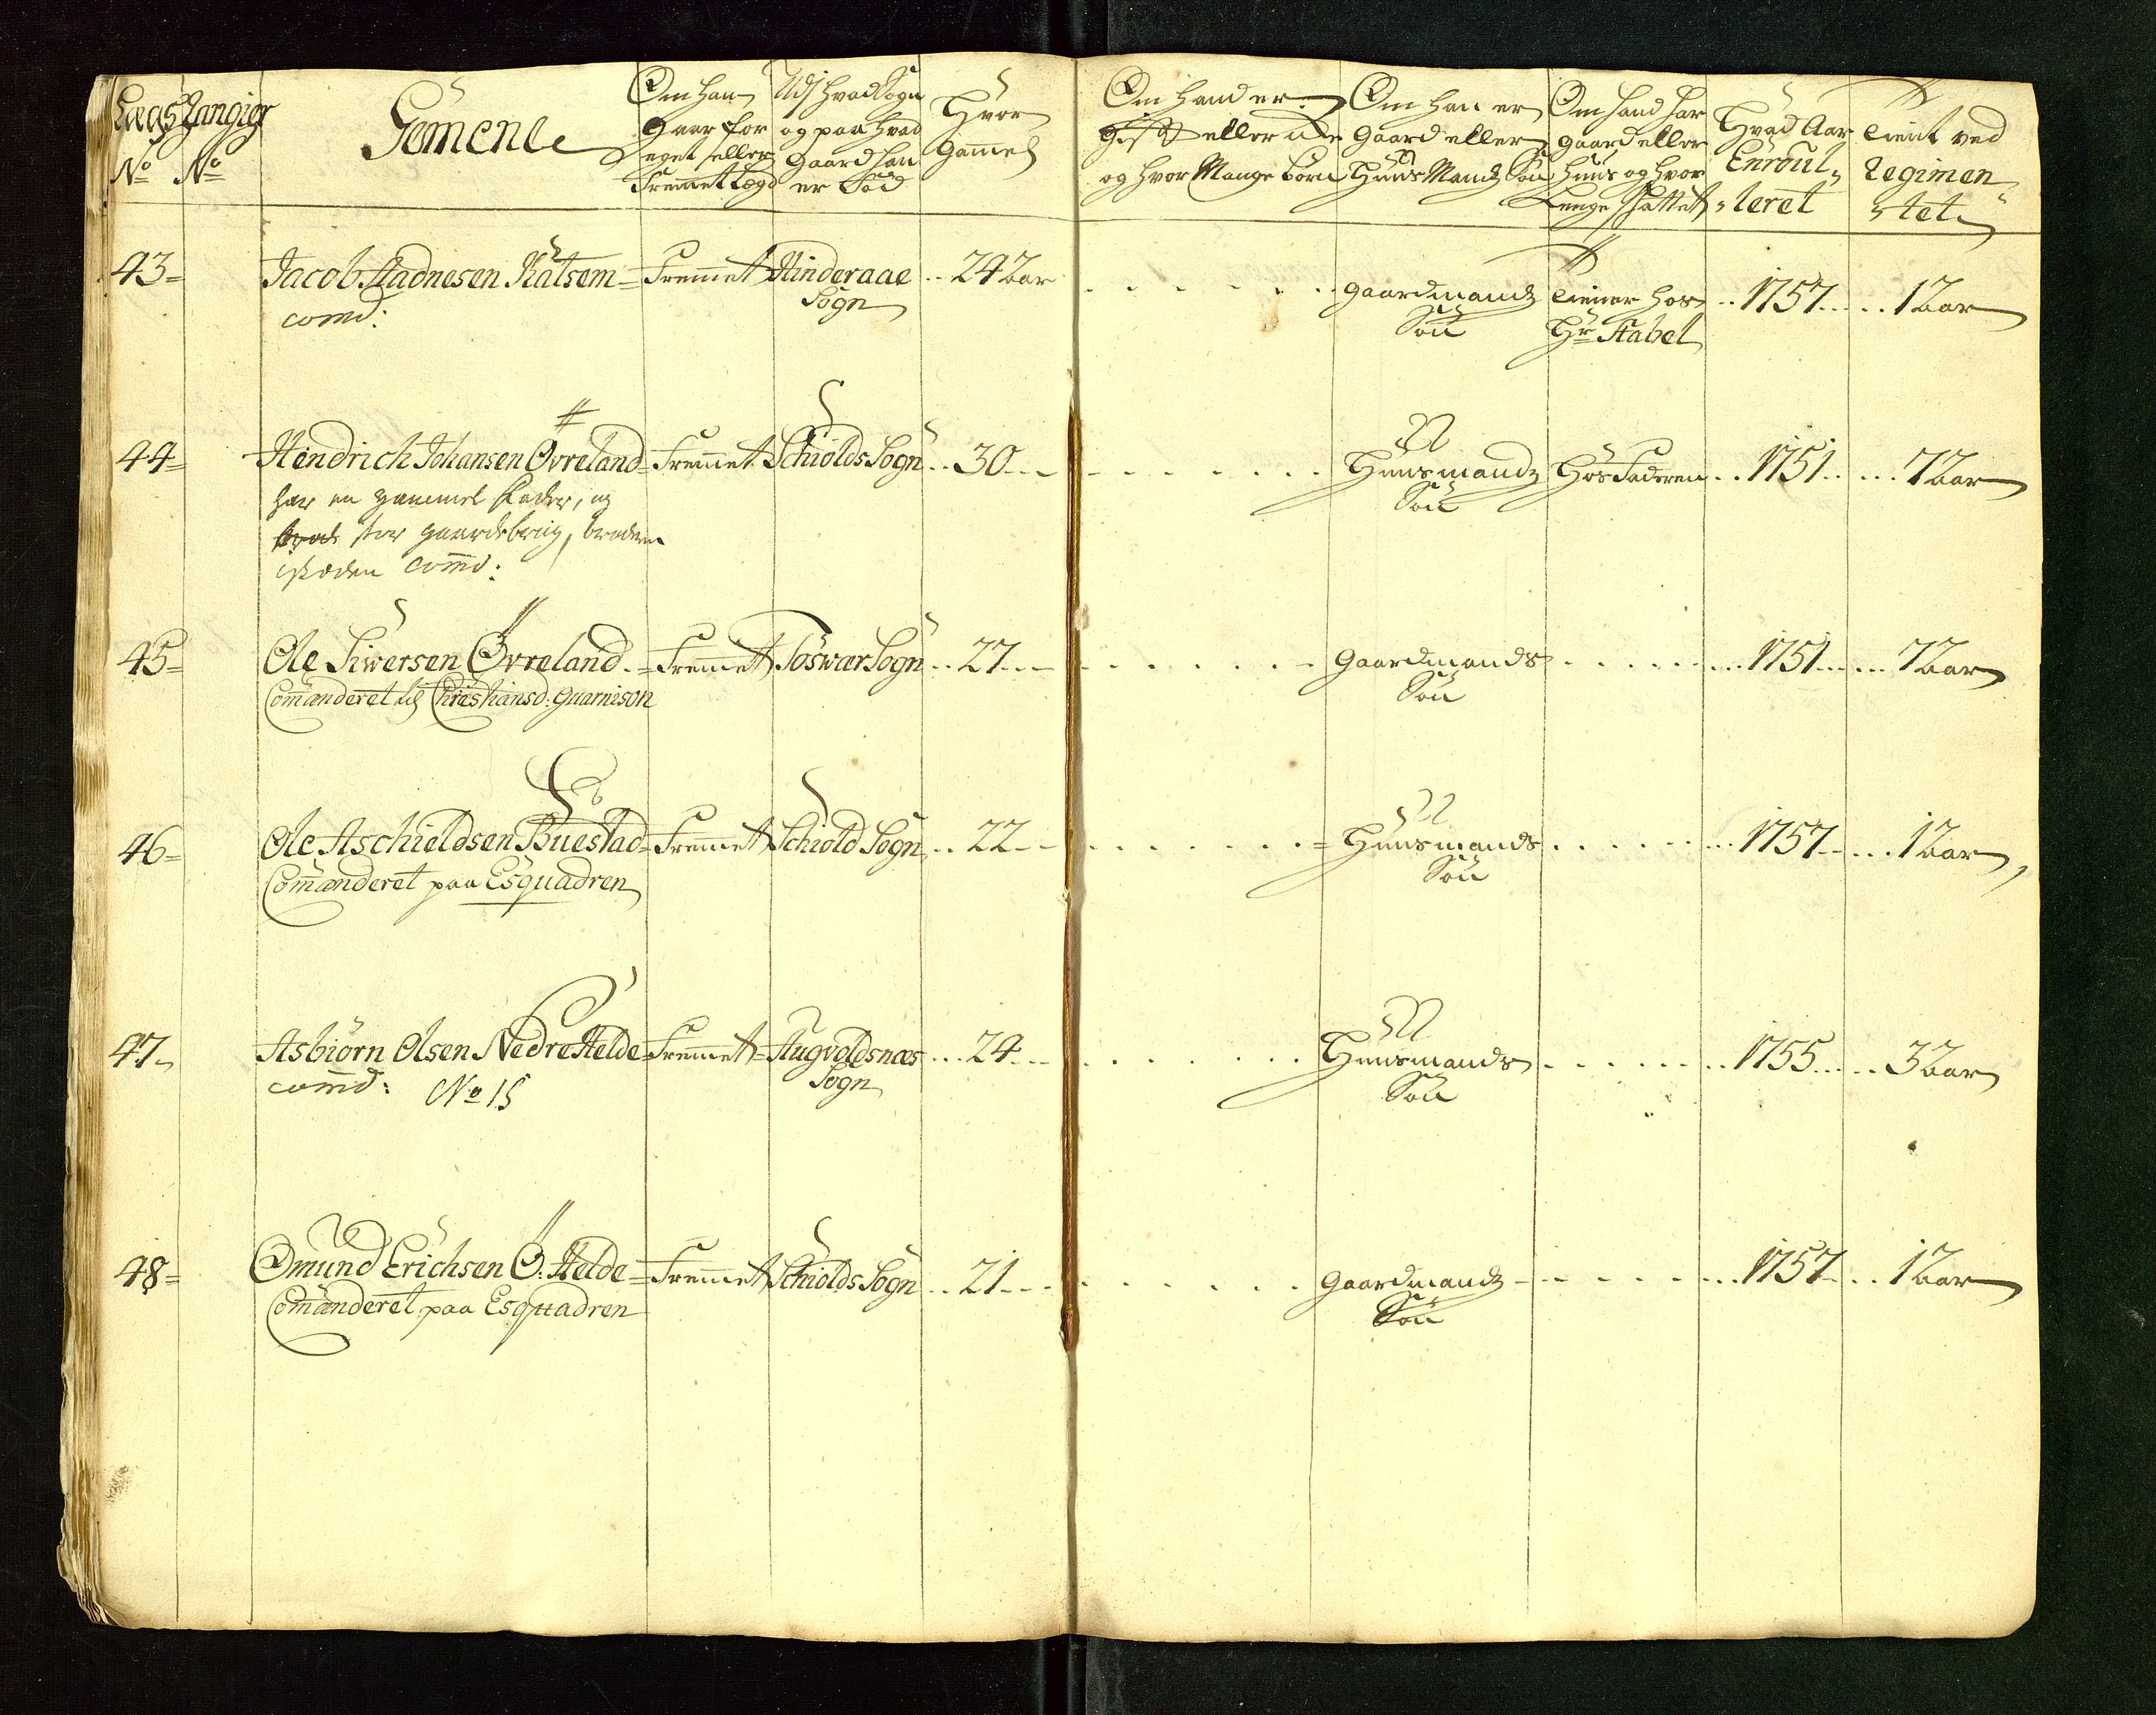 Lægs Rangings Gemene Om han Udj hvad Sogn Hvor Om hand er Om han er Om hand har Hvad Aar tient ved
No No gaar for og paa hvad gammel gift eller ei gaard eller gaard eller Enroul- Regimen-
eget eller gaard han og hvor Mange børn Huus Mands Søn huus og hvor -leret -tet
fremmet Lægd er Fød Lenge skattet
43 Jacob Hadnesen Kalsem Fremmet Hinderaae 24 Aar gaardmands tiener hos 1757 1 Aar
comd: Sogn Søn Hr Stabel
44 Hendrich Johansen Øvreland Fremmet Schiolds Sogn 30 Huusmands Hos Faderen 1751 7 Aar
har en gammel Fader, og Søn
stor gaardebrug, broderen
comd:
45 Ole Siwersen Øvreland Fremmet Toswær Sogn 27 gaardmands 1751 7 Aar
Comanderet til Christiansd: Guarnison Søn
46 Ole Aschieldsen Buestad Fremmet Schiold Sogn 22 Huusmands 1757 1 Aar
Comanderet paa Esquadren Søn
47 Asbiørn Olsen Nedre Helde Fremmet Augvoldsnæs 24 Huusmands 1755 3 Aar
comd: No 15 Sogn Søn
48 Omund Erichsen Ø: Helde Fremmet Schiolds Sogn 21 gaardmands 1757 1 Aar
Comanderet paa Esquadren Søn